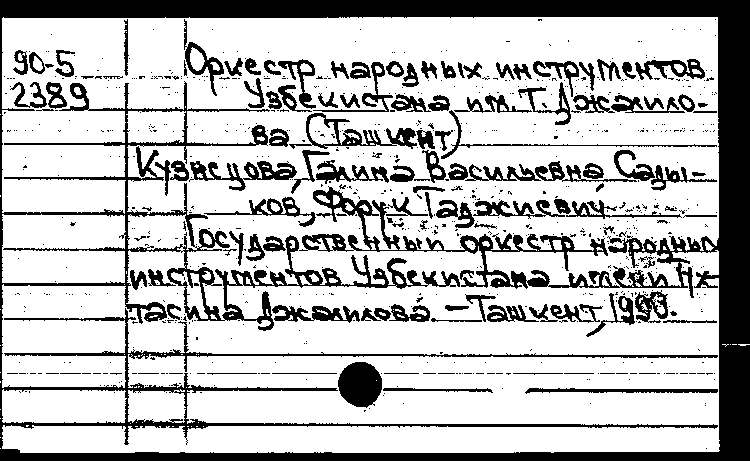 90-5
2389
Оркестр народных инструментов
Узбекистана им. Т. Джалило-
ва (Ташкент)
Кузнецова, Галина Васильевна, Сады-
ков, Фарук Таджиевич
Государственный оркестр народных
инструментов Узбекистана имени Тух-
тасина Джалилова. - Ташкент, 1990.